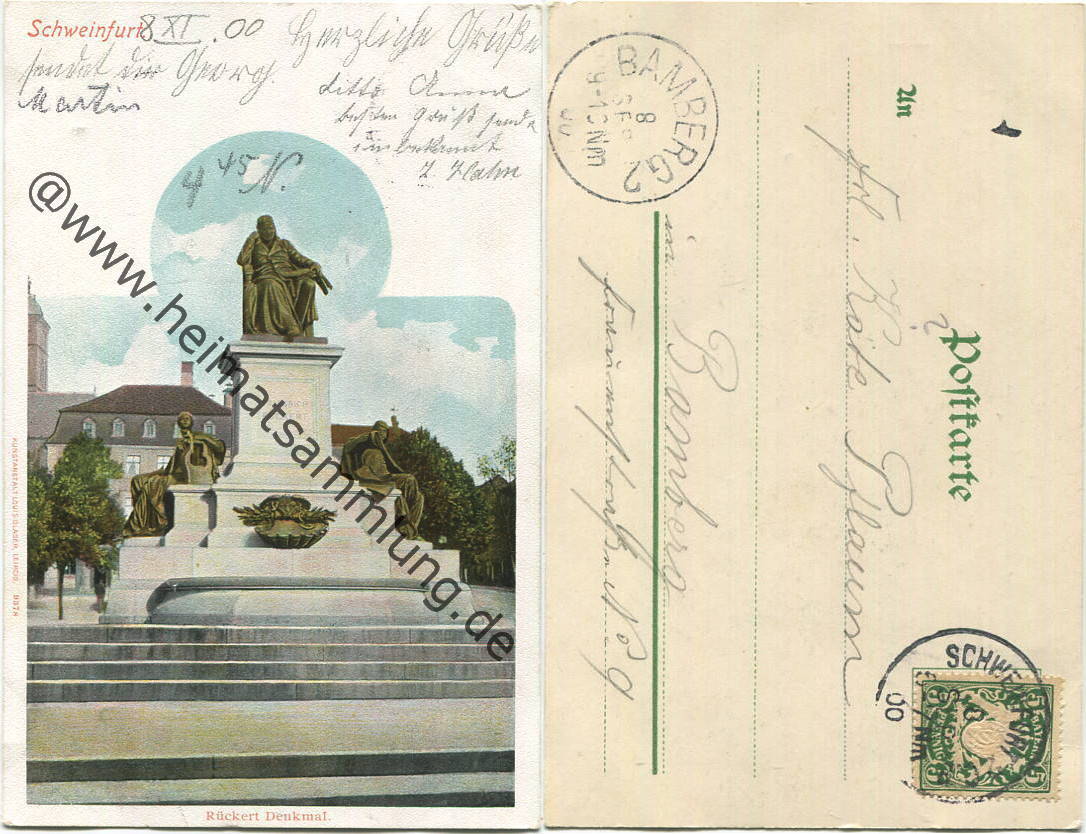 Schweinfurt 8 XI. 00 Herzliche Grüße
sendet dir Georg.
Martin
ditto Anna
besten Gruß sendet
unbekannt
J. Hahn
4 45 N.
@www.heimatsammlung.de
KUNSTANSTALT LOUIS GLASER, LEIPZIG.
Rückert Denkmal.
BAMBERG 2
8
SEP
9-10 Nm
00
An
Postkarte
Frl. Käte Pflaum
in Bamberg
No 9
SCHWEINFURT
00
5 5
5 5